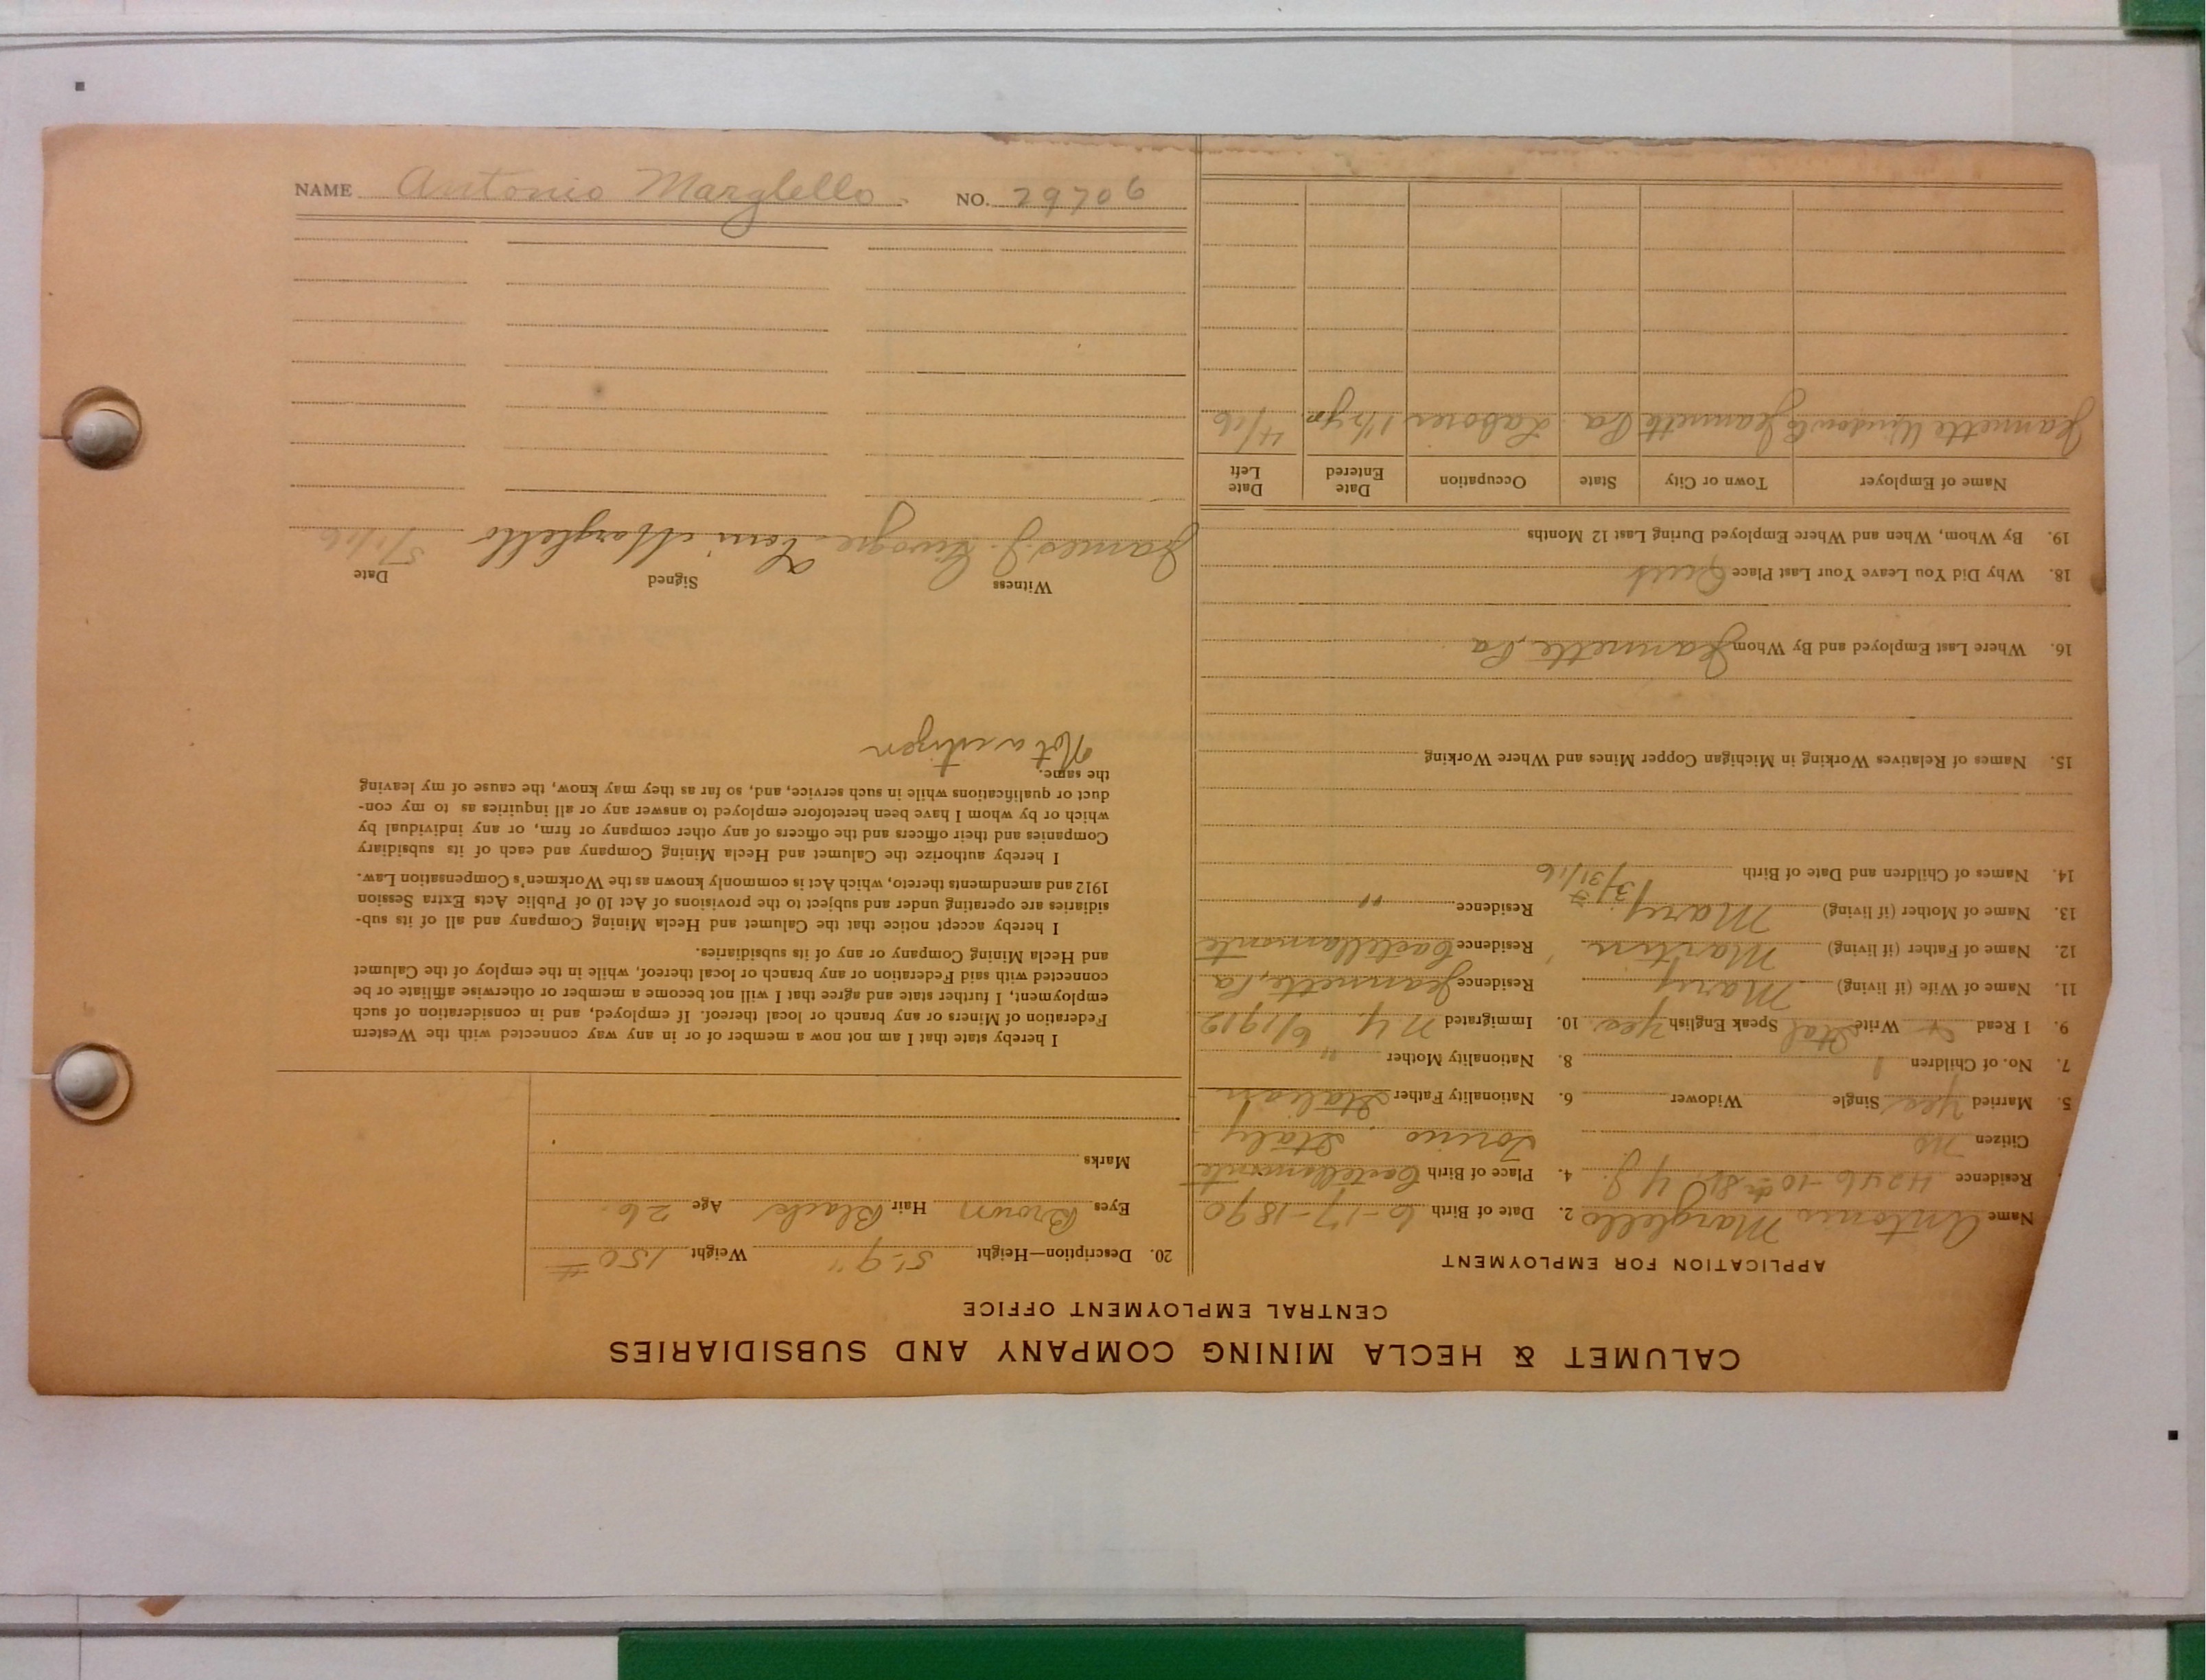 CALUMET & HECLA MINING COMPANY AND SUBSIDIARIES
CENTRAL EMPLOYMENT OFFICE
APPLICATION FOR EMPLOYMENT
Name Antonio Marglello 2. Date of Birth 6-17-1890
Residence 4246-10th St. Y J. 4. Place of Birth Castellamonte
Citizen no Torino Italy
5. Married Yes Single Widower 6. Nationality Father Italian
7. No. of Children 1 8. Nationality Mother "
9. I Read Write Ital Speak English Yes 10. Immigrated N.Y. 6/1912
11. Name of Wife (if living) Mary Residence Jeannette, Pa
12. Name of Father (if living) Martin Residence Castellamonte
13. Name of Mother (if living) Mary Residence "
14. Names of Children and Date of Birth 3/31/16
15. Names of Relatives Working in Michigan Copper Mines and Where Working
16. Where Last Employed and By Whom Jeannette, Pa
18. Why Did You Leave Your Last Place Quit
19. By Whom, When and Where Employed During Last 12 Months
Name of Employer Town or City State Occupation Date Entered Date Left
Jeannette Window Co Jeannette Pa Laborer 1 1/2 yr 4/16
20. Description—Height 5'-9" Weight 150 #
Eyes Brown Hair Black Age 26
Marks
I hereby state that I am not now a member of or in any way connected with the Western
Federation of Miners or any branch or local thereof. If employed, and in consideration of such
employment, I further state and agree that I will not become a member or otherwise affiliate or be
connected with said Federation or any branch or local thereof, while in the employ of the Calumet
and Hecla Mining Company or any of its subsidiaries.
I hereby accept notice that the Calumet and Hecla Mining Company and all of its sub-
sidiaries are operating under and subject to the provisions of Act 10 of Public Acts Extra Session
1912 and amendments thereto, which Act is commonly known as the Workmen's Compensation Law.
I hereby authorize the Calumet and Hecla Mining Company and each of its subsidiary
Companies and their officers and the officers of any other company or firm, or any individual by
which or by whom I have been heretofore employed to answer any or all inquiries as to my con-
duct or qualifications while in such service, and, so far as they may know, the cause of my leaving
the same.
Not a citizen
Witness Signed Date
James J. Toni Marglello 5/1/16
NAME Antonio Marglello. NO. 29706